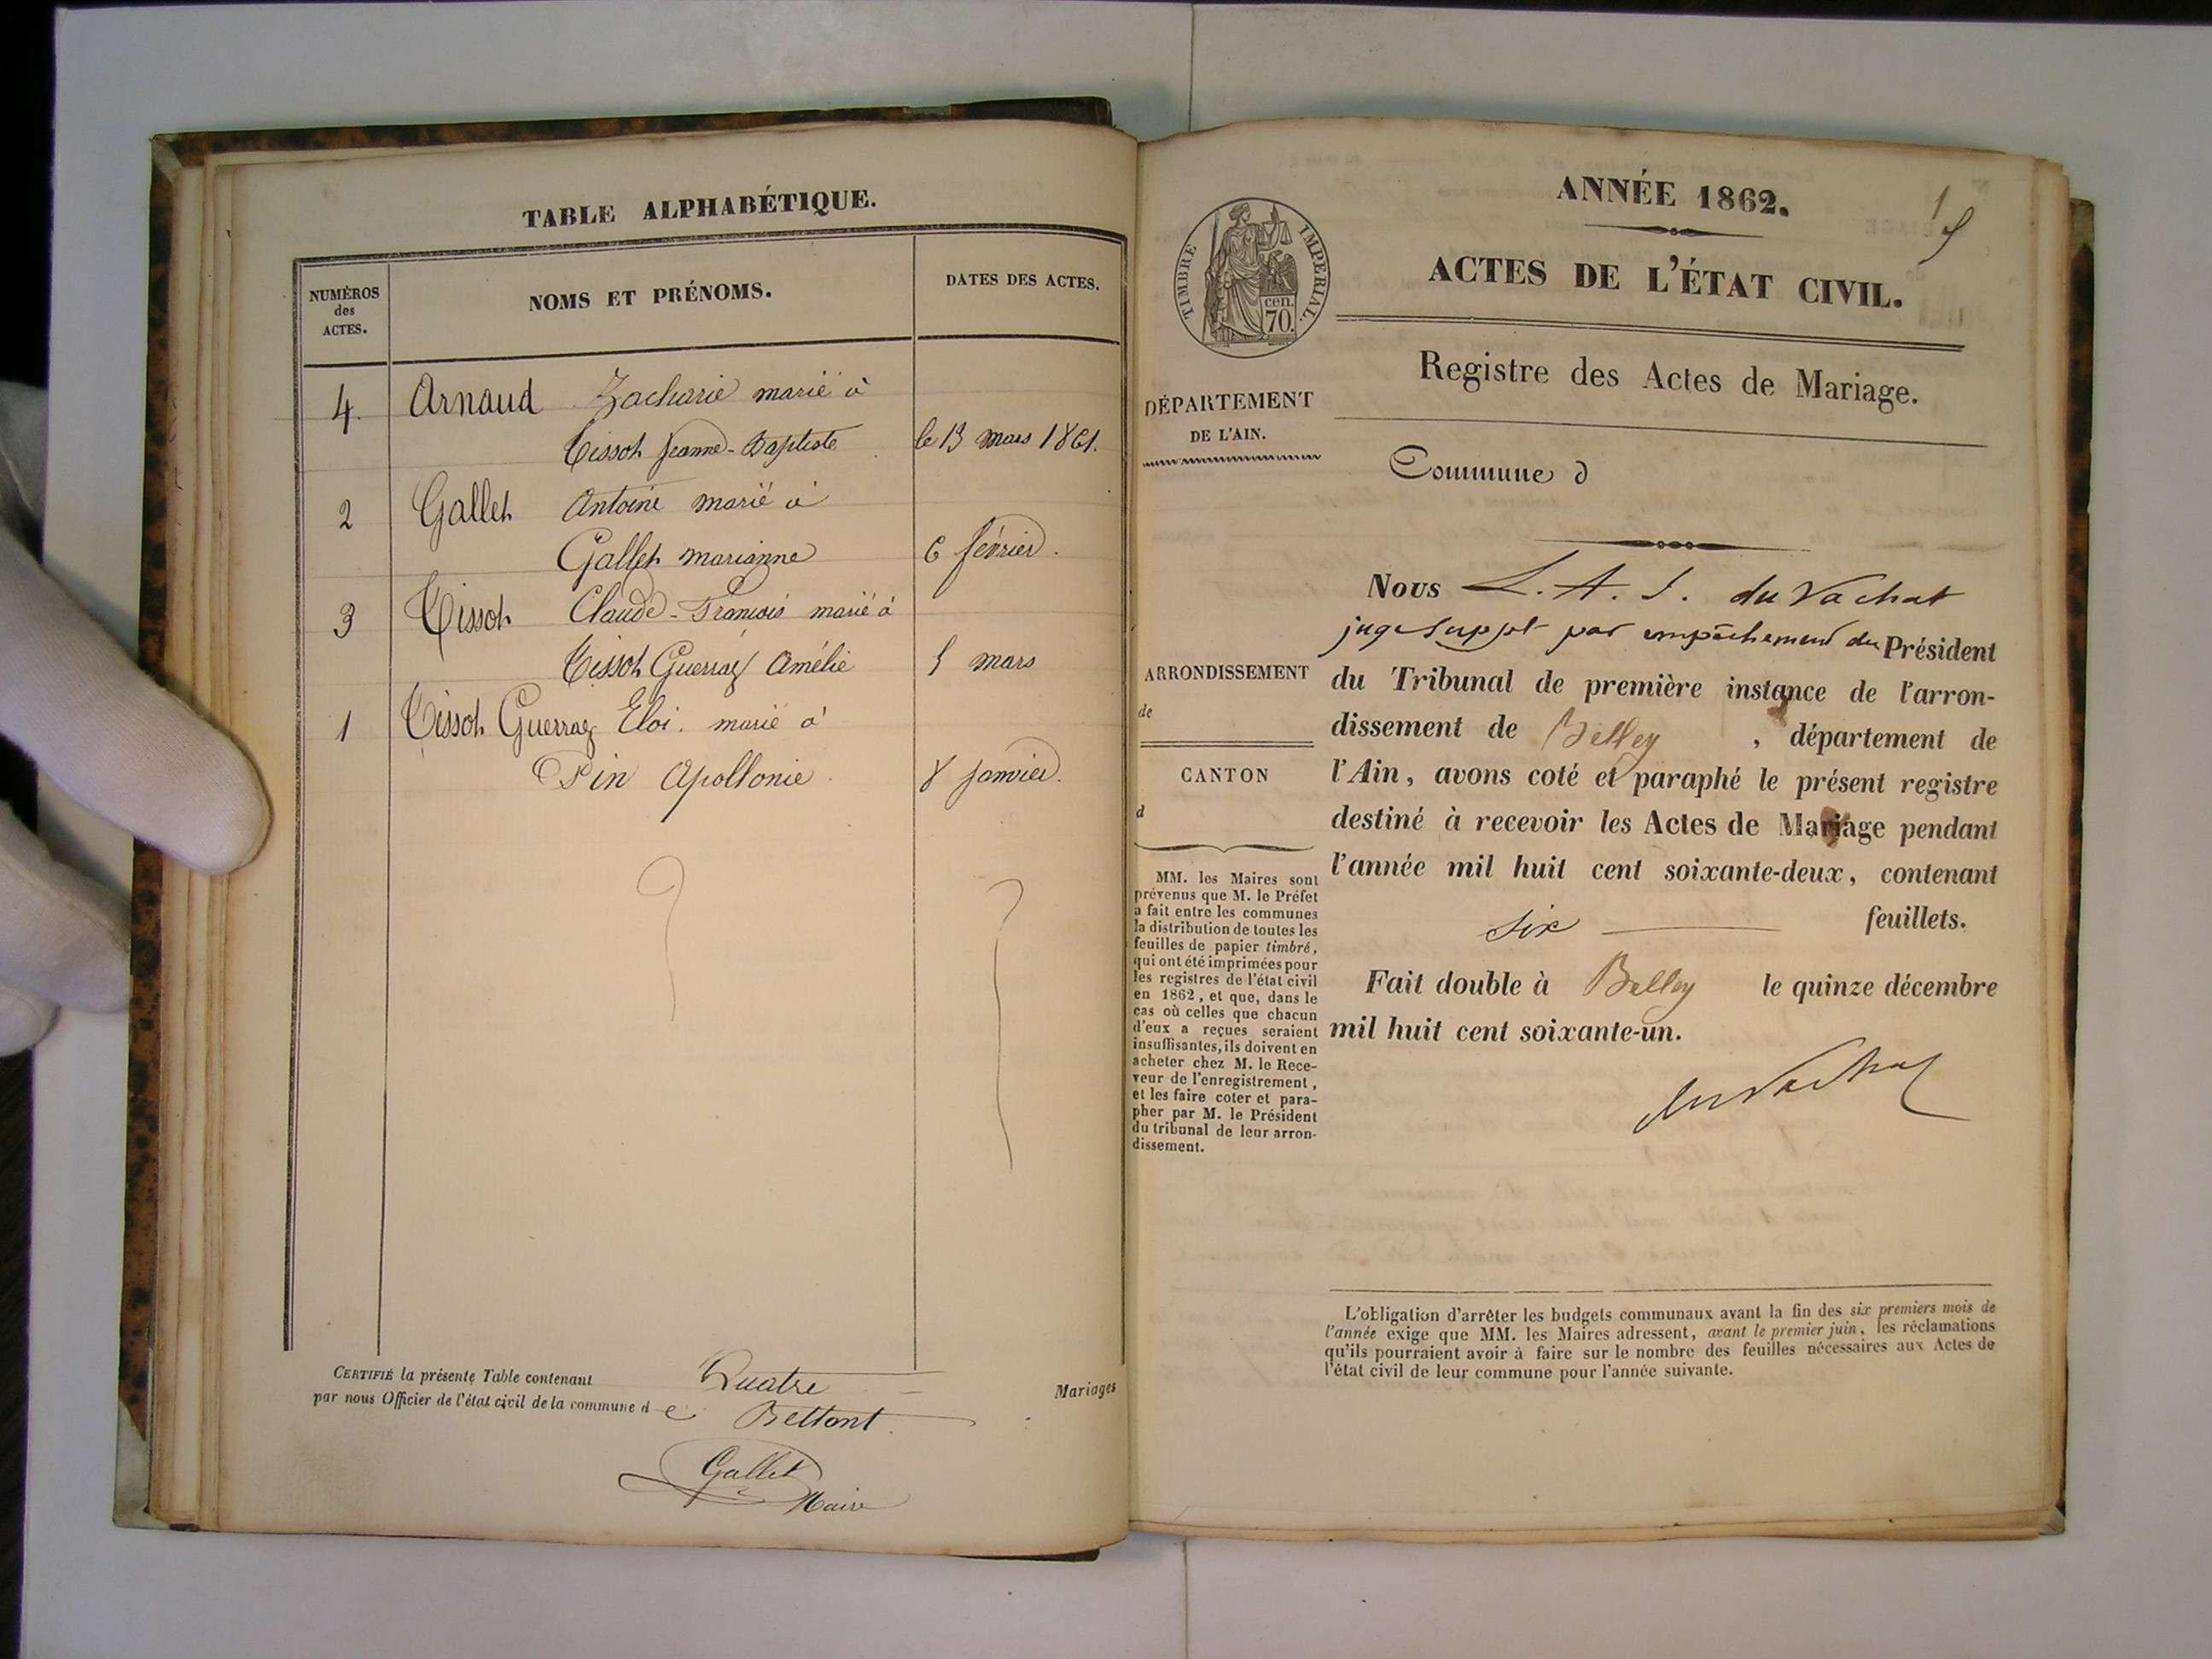 TABLE ALPHABÉTIQUE.
NUMÉROS
des
ACTES.
NOMS ET PRÉNOMS.
DATES DES ACTES.
4. Arnaud Zacharie marié à
Tissot Jeanne-Baptiste le 13 mars 1861.
2 Gallet Antoine marié à
Gallet marianne 6 février.
3 Tissot Claude-François marié à
Tissot Guerraz Amélie 5 mars
1 Tissot Guerraz Eloi. marié à
Pin Apollonie. 8 janvier.
CERTIFIÉ la présente Table contenant Quatre Mariages
par nous Officier de l'état civil de la commune de Bettant.
Gallet
Maire
ANNÉE 1862.
1
ACTES DE L'ÉTAT CIVIL.
TIMBRE IMPERIAL.
cen.
70.
Registre des Actes de Mariage.
DÉPARTEMENT
DE L'AIN.
Commune d
Nous L. A. J. du Vachat
juge suppt par empêchement du Président
du Tribunal de première instance de l'arron-
dissement de Belley, département de
l'Ain, avons coté et paraphé le présent registre
destiné à recevoir les Actes de Mariage pendant
l'année mil huit cent soixante-deux, contenant
six feuillets.
Fait double à Belley le quinze décembre
mil huit cent soixante-un.
du Vachat
ARRONDISSEMENT
de
CANTON
d
MM. les Maires sont
prévenus que M. le Préfet
a fait entre les communes
la distribution de toutes les
feuilles de papier timbré,
qui ont été imprimées pour
les registres de l'état civil
en 1862, et que, dans le
cas où celles que chacun
d'eux a reçues seraient
insuffisantes, ils doivent en
acheter chez M. le Rece-
veur de l'enregistrement,
et les faire coter et para-
pher par M. le Président
du tribunal de leur arron-
dissement.
L'obligation d'arrêter les budgets communaux avant la fin des six premiers mois de
l'année exige que MM. les Maires adressent, avant le premier juin, les réclamations
qu'ils pourraient avoir à faire sur le nombre des feuilles nécessaires aux Actes de
l'état civil de leur commune pour l'année suivante.